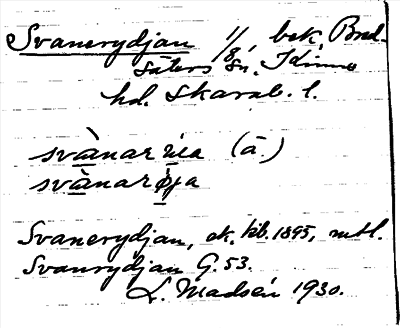 Svanerydjan 1/8, bek. Bred-
säters sn. Kinne
hd. Skarab. l.
svànar (ä.)
svànar
Svanerydjan, ek. kb. 1895, mtl.
Svanrydjan G. 53.
L. Madsén 1930.